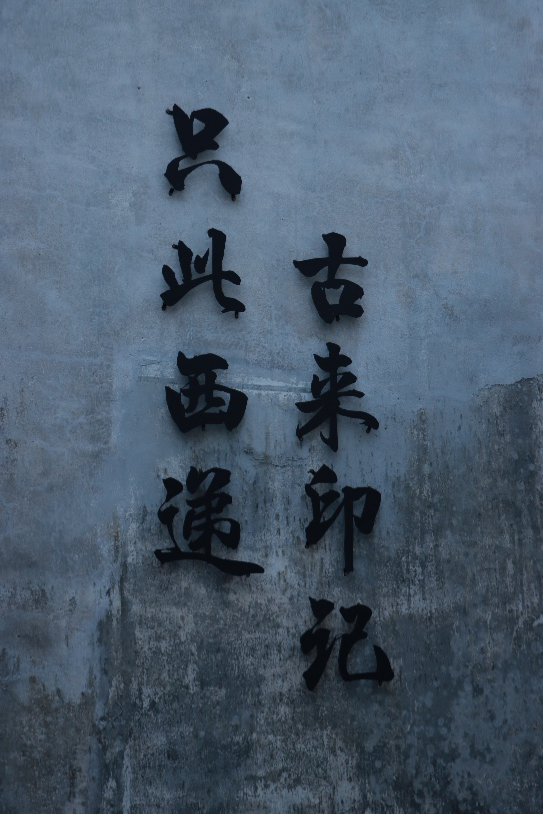 只此西递
古来印记